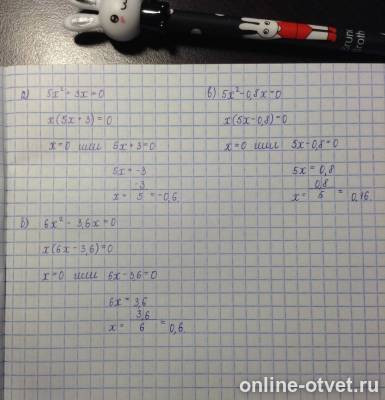 а) 5x² + 3x = 0
x(5x + 3) = 0
x = 0 или 5x + 3 = 0
5x = -3
x = -3/5 = -0,6.
б) 6x² - 3,6x = 0
x(6x - 3,6) = 0
x = 0 или 6x - 3,6 = 0
6x = 3,6
x = 3,6/6 = 0,6.
в) 5x² - 0,8x = 0
x(5x - 0,8) = 0
x = 0 или 5x - 0,8 = 0
5x = 0,8
x = 0,8/5 = 0,16.
online-otvet.ru